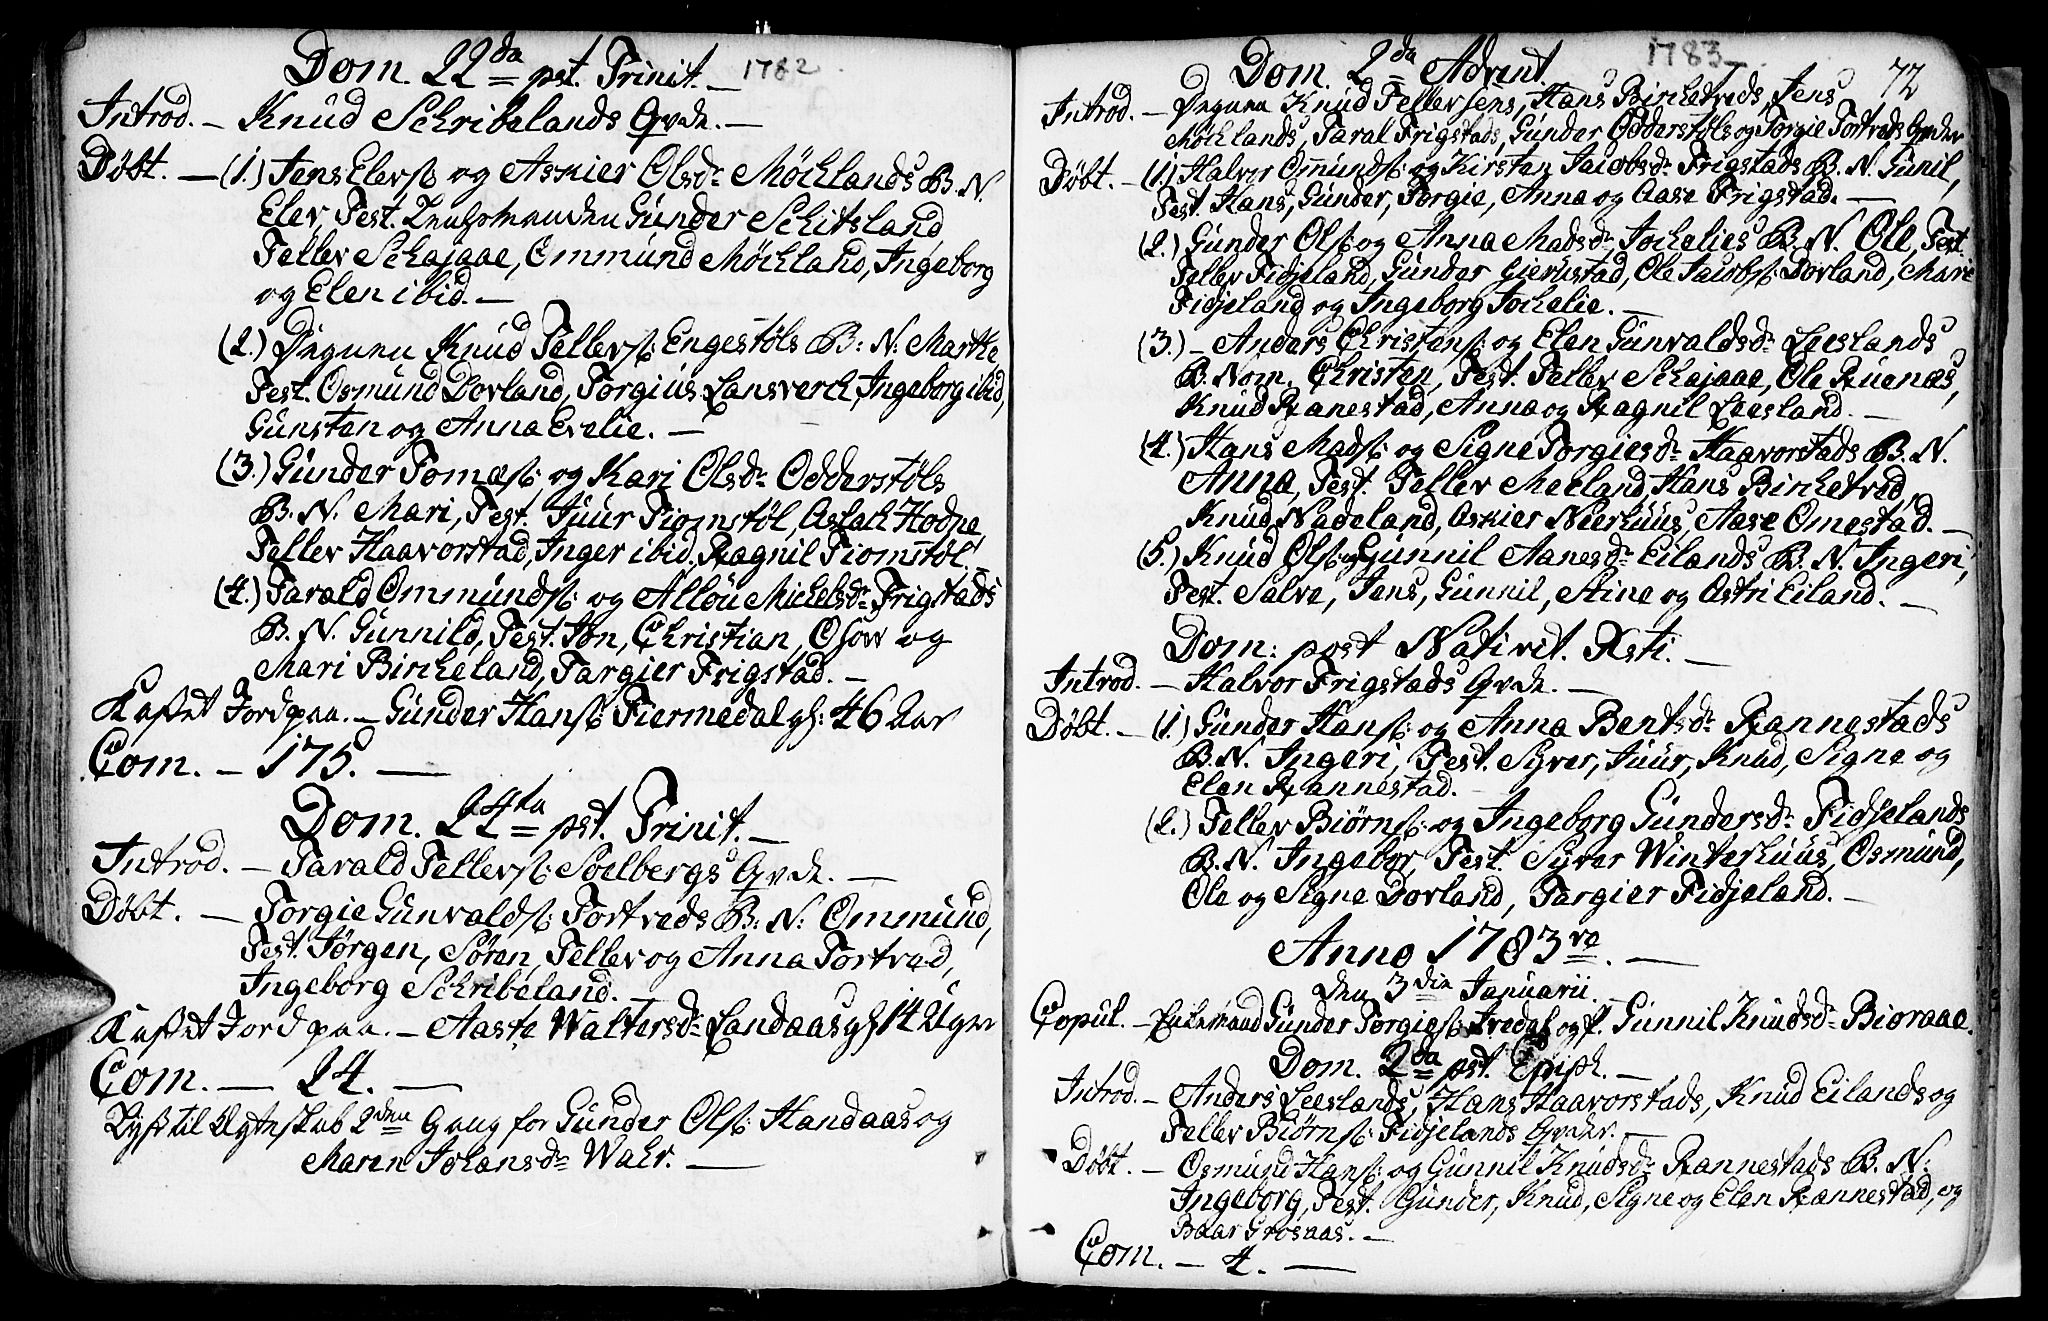 Dom. 22da pst. Trinit. 1782
Introd. – Knud Schribelands Qvde. –
Döbt. – (1.) Jens Elevsß og Askier Olsdr Möchlands B. N.
Elev, Test. Gunder Schitsland
Tellev Schajaae, Ommund Möchland, Ingeborg
og Elen ibid. –
(2.) Knud Tellevsß: Engestöls B: N: Marthe
Test. Osmund Dovland, Torgius Lansverch, Ingeborg ibid,
Gunsten og Anna Evelie. –
(3.) Gunder Tomæsß: og Kari Olsdr Odderstöls
B. N. Mari, Test. Juur Fiomstöl, Aslach Hodne,
Tellev Haavorstad, Inger ibid. Ragnil Fiomstöl. –
(4.) Tarald Ommundsß: og Allöu Michelsdr Frigstads
B. N. Gunnild, Test. Jon, Christian, Osow og
Mari Bircheland, Targier Frigstad. –
Kastet Jord paa. – Gunder Hansß Fiermedal gl: 46 Aar
Com. – 175. –
Dom. 24ta pst. Trinit. –
Introd. – Tarald Tellevsß: Soelbergs Qvde. –
Döbt. – Torgie Gunvaldsß: Tortveds B: N: Ommund,
Test. Jörgen, Sören, Tellev og Anna Tortved,
Ingeborg Schribeland. –
Kastet Jord paa. – Aaste Waltersdr Landaas gl 14 Uger
Com. – 24. –
Lyst til Egteskab 2den Gang for Gunder Olsß: Handaas og
Maren Johansdr Wehr. –
Dom. 2da Advent. 1783 – 72
Introd. – Knud Tellevsens, Hans Birchetveds, Jens
Möchlands, Taral Frigstads, Gunder Odderstöls og Torgie Tortveds Qvder
Döbt. – (1.) Halvor Omundsß: og Kirsten Jacobsdr Frigstads B. N. Gunil,
Test. Hans, Gunder, Torgie, Anna og Aase Frigstad. –
(2.) Gunder Olsß og Anna Madsdr Jochelies B. N. Ole, Test.
Tellev Fidjeland, Gunder Gierustad, Ole Jacobsß: Dovland, Mari
Fidjeland og Ingeborg Jochelie. –
(3.) – Anders Christensß: og Elen Gunvaldsdr Leeslands
B. Nom. Christen, Test. Tellev Schajaae, Ole Ruenæs,
Knud Ranestad, Anna og Ragnil Leesland. –
(4.) Hans Madsß: og Signe Torgiesdr Haavorstads B. N.
Anna, Test. Tellev Meeland, Hans Birchetved,
Knud Nadeland, Askier Neerhuus, Aase Omestad. –
(5.) Knud Olsß og Gunnil Aanesdr Eilands B. N. Ingeri,
Test. Salve, Jens, Gunnil, Stine og Astri Eiland. –
Dom: post Nativit. Xsti. –
Introd. – Halvor Frigstads Qvde. –
Döbt. – (1.) Gunder Hansß: og Anna Bentsdr Rannestads
B. N. Ingeri, Test. Syver, Juur, Knud, Signe og
Elen Rannestad. –
(2.) Tellev Biörnsß: og Ingeborg Gundersdr Fidjelands
B. N. Ingebor, Test. Syver Winterhuus, Osmund,
Ole og Signe Dovland, Targier Fidjeland. –
Anno 1783ve. –
den 3die Januarii.
Copul. – Enkemand Gunder Torgiesß Iredal og P. Gunnil Knudsdr Bioraae.
Dom. 2da pst. Epiph. –
Introd. – Anders Leeslands, Hans Haavorstads, Knud Eilands og
Tellev Biörnsß: Fidjelands Qvder. –
Döbt. – Osmund Hansß: og Gunnil Knudsdr Rannestads B. N:
Ingeborg, Test. Gunder, Knud, Signe og Elen Rannestad, og
Baar Grosaas. –
Com. – 4. –